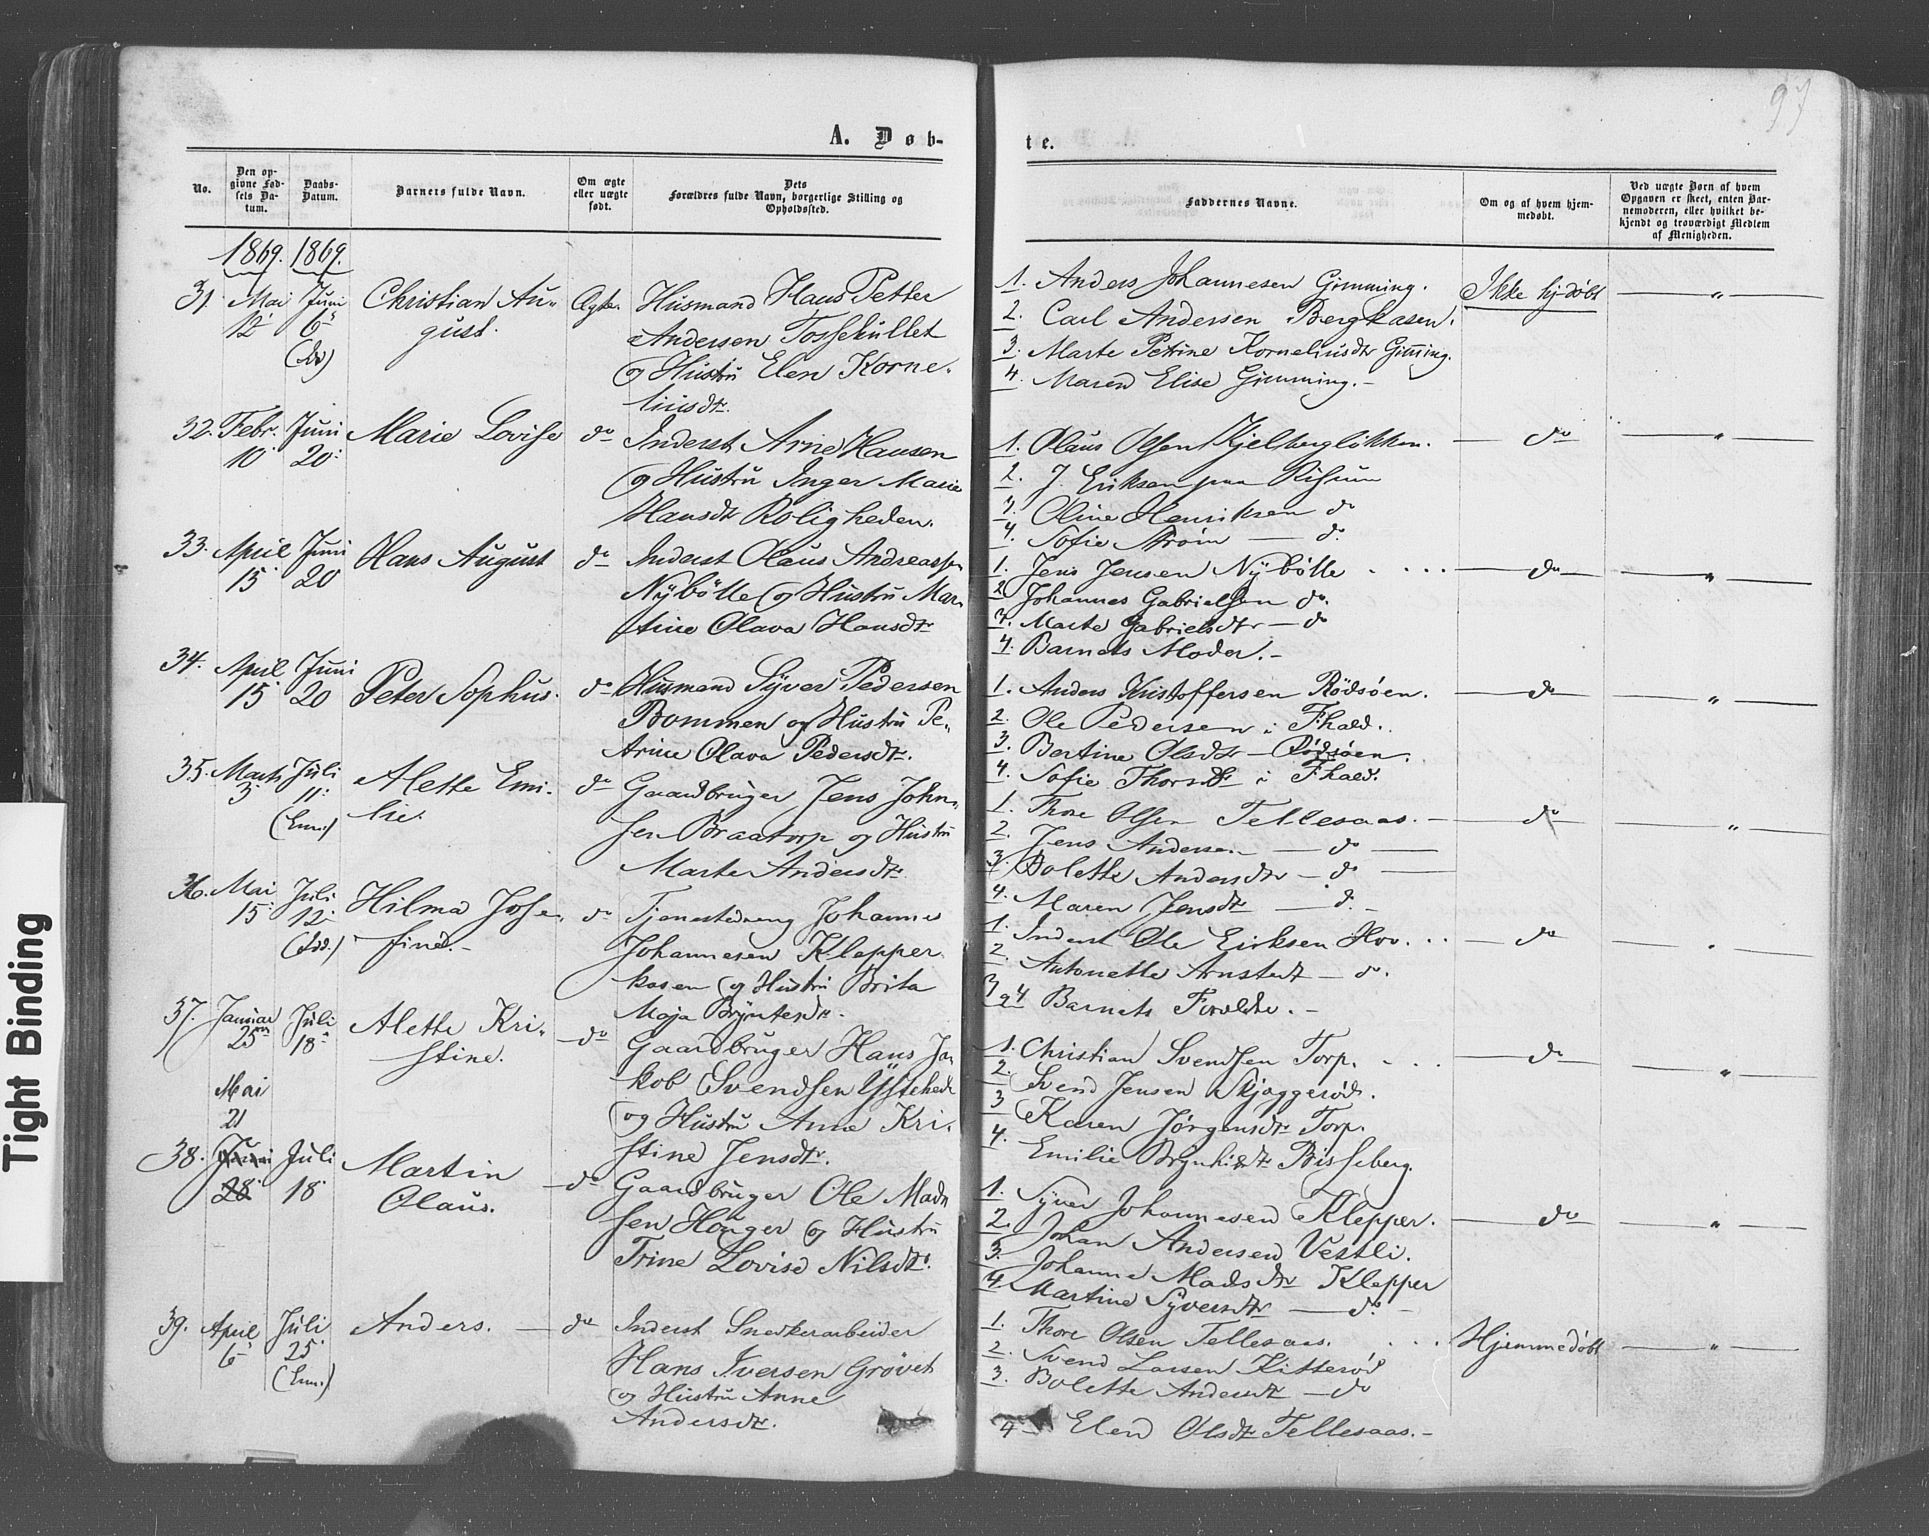 97
A. Døb-
te.
No.
Den op-
givne Fød-
sels Da-
tum.
Daabs-
Datum.
Barnets fulde Navn.
Om ægte
eller uægte
født.
Dets
Forældres fulde Navn, borgerlige Stilling og
Opholdssted.
Faddernes Navne.
Om og af hvem hjem-
medøbt.
Ved uægte Børn af hvem
Opgaven er skeet, enten Bar-
nemoderen, eller hvilket be-
kjendt og troværdigt Medlem
af Menigheden.
1869. 1869.
31. Mai 12 Juni 6 Christian Au-
gust.
Ægte.
Husmand Hans Petter
Andersen Tossekullet
og Hustru Elen Korne-
liusdtr.
1. Anders Johannesen Gimming.
2. Carl Andersen Bergkasen.
3. Marte Petrine Korneliusdtr Gimming.
4. Maren Elise Gimming.-
Ikke hjdøbt
"
32. Febr. 10 Juni 20 Marie Lovise
do
Inderst Arne Hansen
og Hustru Inger Marie
Hansdtr Roligheden.
1. Olaus Olsen Kjelbergløkken.
2. J. Eriksen paa Risum
3. Oline Henriksen do
4. Sofie Strøm — do
do
"
33. April 15 Juni 20 Hans August
do
Inderst Olaus Andreassen
Nybølle og Hustru Mar-
tine Olava Hansdtr
1. Jens Jensen Nybølle
2. Johannes Gabrielsen do.
3. Marte Gabrielsdtr — do
4. Barnets Moder.-
do
"
34. April 15 Juni 20 Peter Sophus.
do
Husmand Syver Pedersen
Bommen og Hustru Pe-
trine Olava Pedersdtr.
1. Anders Kristoffersen Rødsøen.
2. Ole Pedersen i Fhald.
3. Bertine Olsdtr — Rødsøen.
4. Sofie Thorsdtr i Fhald.
do
"
35. Marts 3 Juli 11 (Enn.) Alette Emi-
lie.
do
Gaardbruger Jens John-
sen Braatorp og Hustru
Marte Andersdtr.
1. Thore Olsen Tellesaas.-
2. Jens Andersen — do
3. Bolette Andersdtr — do
4. Maren Jensdtr — do-
do
"
36. Mai 15 Juli 12 (Idd.) Hilma Jose-
fine.-
do
Tjenestedreng Johannes
Johannesen Klepper-
kasen og Hustru Brita
Maja Bryntesdtr.
1. Inderst Ole Eriksen Hov.
2. Antonette Arnstedt — do.
3 og 4 Barnets Forældre.-
do
"
37. Januar 25 Juli 18 Alette Kri-
stine.
do
Gaardbruger Hans Ja-
kob Svendsen Ystehede
og Hustru Anne Kri-
stine Jensdtr.
1. Christian Svendsen Torp.
2. Svend Jensen Skjaggerød.
3 Karen Jørgensdtr Torp.
4. Emilie Brynhildtr Bisseberg.
do
"
Mai
21
38. Juli 18 Martin
Olaus.
do
Gaardbruger Ole Mad-
sen Hønger og Hustru
Trine Lovise Nilsdtr.
1. Syver Johannesen Klepper.
2. Johan Andersen Vestli.
3. Johanne Madsdtr Klepper
4. Martine Syversdtr — do.
do
"
39. April 6 Juli 25 (Enn.) Anders.
do
Inderst Snedkerarbeider
Hans Iversen Grøvet
og Hustru Anne
Andersdtr.
1. Thore Olsen Tellesaas.
2. Svend Larsen Kitterød
3. Bolette Andersdtr — do
4 — Elen Olsdtr Tellesaas.-
Hjemmedøbt
"
Tight Binding